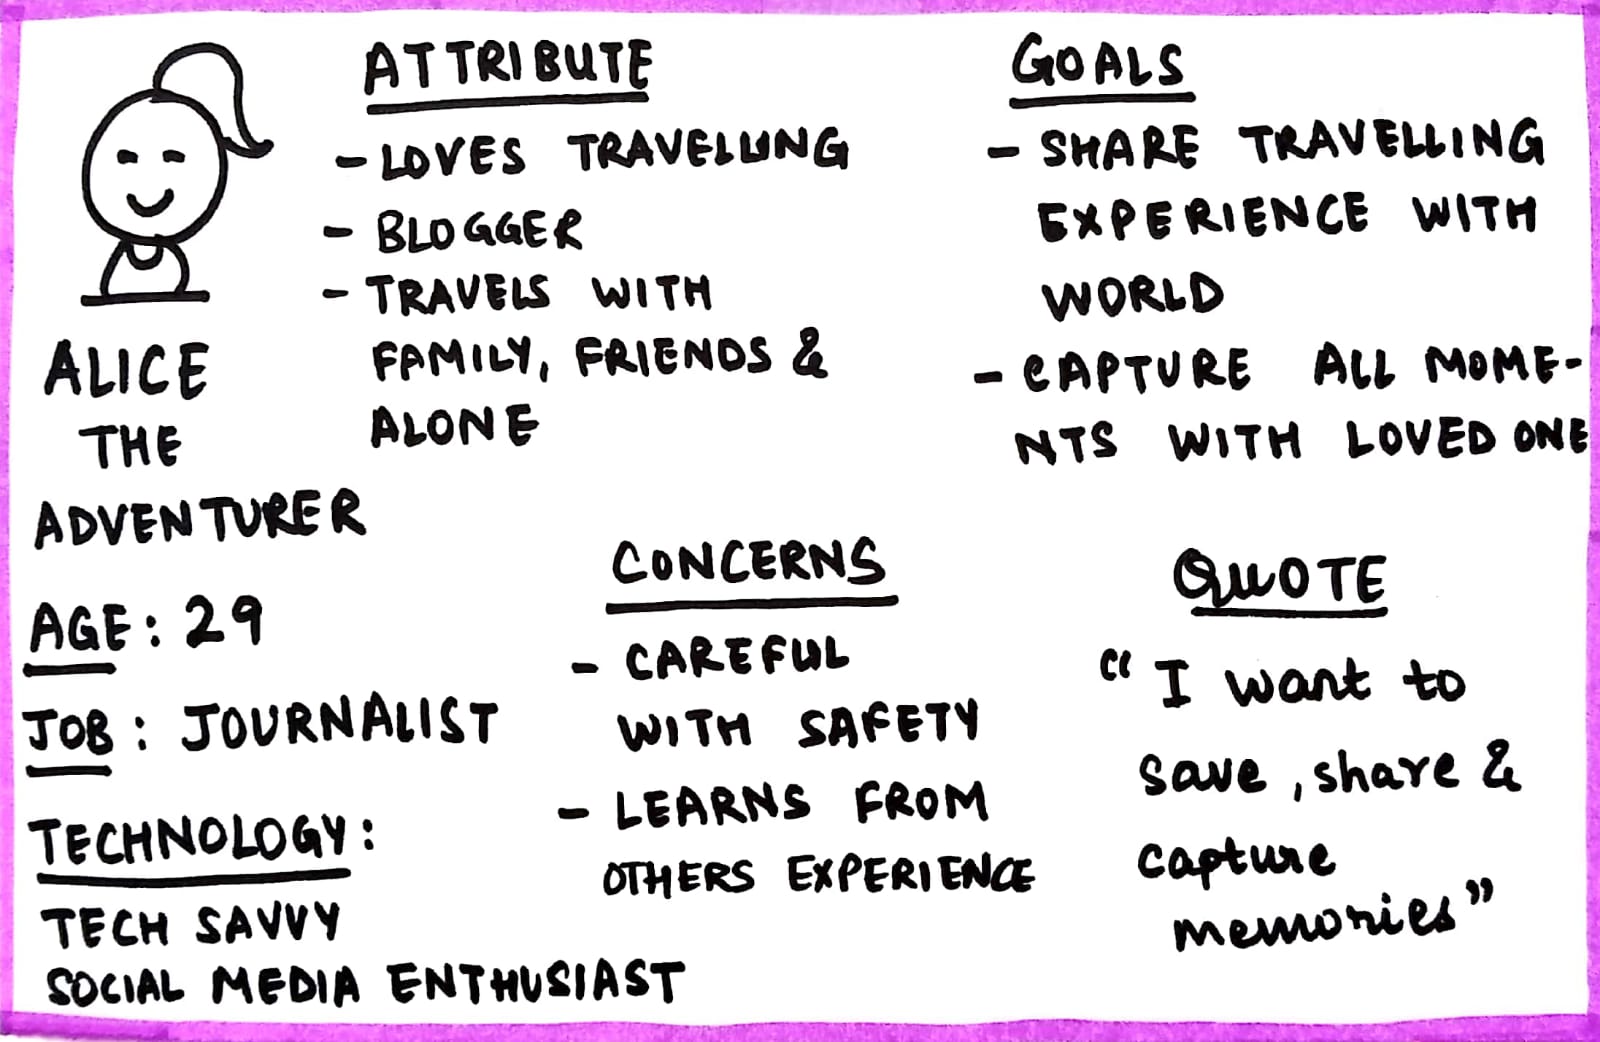 ALICE
THE
ADVENTURER
AGE: 29
JOB: JOURNALIST
TECHNOLOGY:
TECH SAVVY
SOCIAL MEDIA ENTHUSIAST
ATTRIBUTE
- LOVES TRAVELLING
- BLOGGER
- TRAVELS WITH
FAMILY, FRIENDS &
ALONE
GOALS
- SHARE TRAVELLING
EXPERIENCE WITH
WORLD
- CAPTURE ALL MOME-
NTS WITH LOVED ONE
CONCERNS
- CAREFUL
WITH SAFETY
- LEARNS FROM
OTHERS EXPERIENCE
QUOTE
"I want to
save, share &
capture
memories"